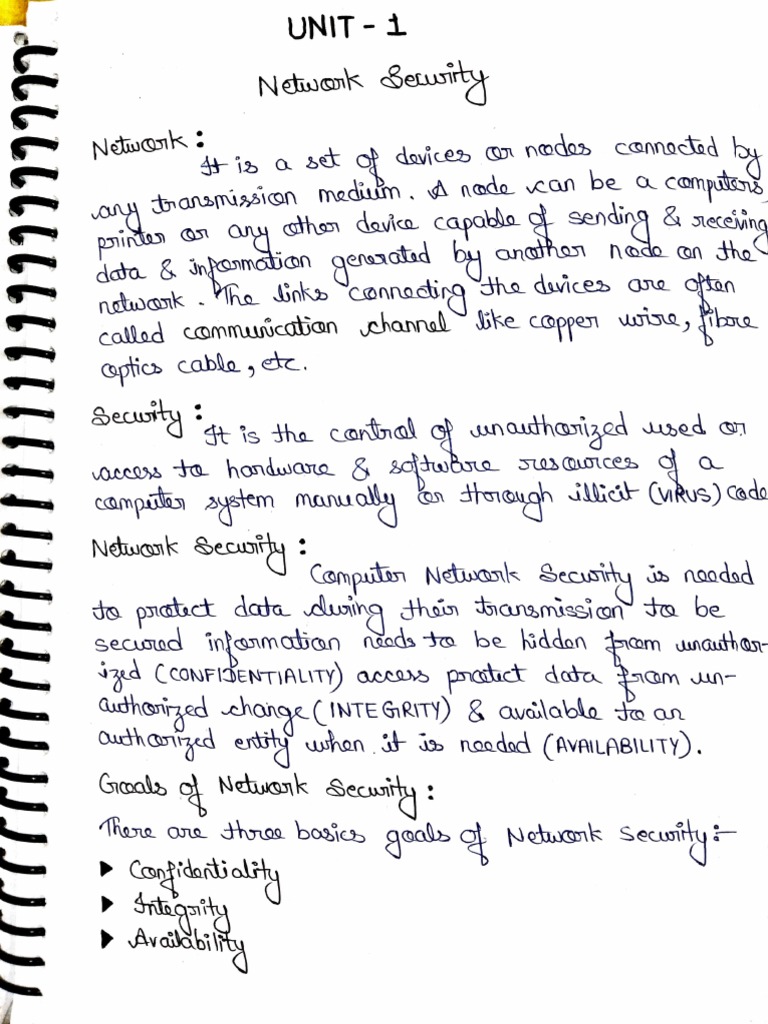 UNIT - 1
Network Security
Network :
It is a set of devices or nodes connected by
any transmission medium. A node can be a computers,
printer or any other device capable of sending & receiving
data & information generated by another node on the
network. The links connecting the devices are often
called communication channel like copper wire, fibre
optics cable, etc.
Security :
It is the control of unauthorized used or
access to hardware & software resources of a
computer system manually or through illicit (VIRUS) code
Network Security :
Computer Network Security is needed
to protect data during their transmission to be
secured information needs to be hidden from unauthor-
ized (CONFIDENTIALITY) access protect data from un-
authorized change (INTEGRITY) & available to an
authorized entity when it is needed (AVAILABILITY).
Goals of Network Security :
There are three basics goals of Network Security :-
▶ Confidentiality
▶ Integrity
▶ Availability